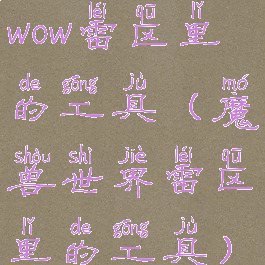 léi qū lǐ
wow雷区里
de gōng jù mó
的工具（魔
shòu shì jiè léi qū
兽世界雷区
lǐ de gōng jù
里的工具）